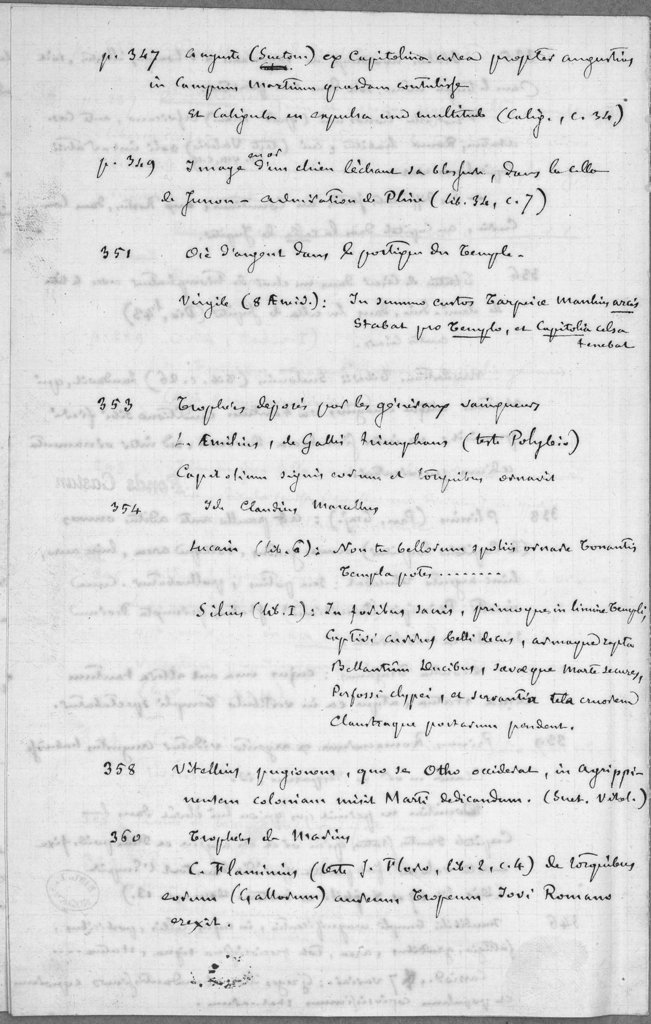 p. 347 Auguste (Sueton) ex Capitolina area propter angustias
in Campum Martium quasdam contulisse
Et Caligula en expulsa una multitudo (Calig., c. 34)
p. 349 Image en or d'un chien léchant sa blessure, dans la cella
de Junon - admiration de Pline (lib. 34, c. 7)
351 Oie d'argent dans le portique du Temple.
Virgile (8 Æneid.): In summo custos Tarpeiæ Manlius arcis
Stabat pro Templo, et Capitolia celsa
tenebat
353 Trophées déposés par les généraux vainqueurs
L. Æmilius, de Gallis triumphans (teste Polybio)
Capitolium signis eorum et torquibus ornavit
354 Id. Claudius Marcellus
Lucain (lib. 6): Non tu bellorum spoliis ornare Tonantis
Templa potes ........
Silius (lib. I): In foribus sacris, primoque in limine Templi,
Captivi currus belli decus, armaque rapta
Bellantium Ducibus, sævæque Marte secures,
Perfossi clypei, et servantia tela cruorem
Claustraque portarum pendent.
358 Vitellius pugionem, quo se Otho occiderat, in Agrippi-
nensem coloniam misit Marti dedicandum. (Suet. Vitel.)
360 Trophées de Marius
C. Flaminius (teste J. Floro, lib. 2, c. 4) de torquibus
eorum (Gallorum) aureum Tropeum Jovi Romano
erexit.